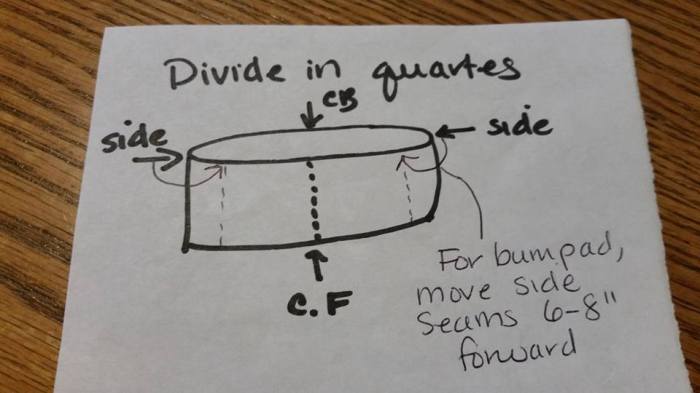 Divide in quartes
CB
side
side
C.F
For bumpad,
move side
Seams 6-8"
forward